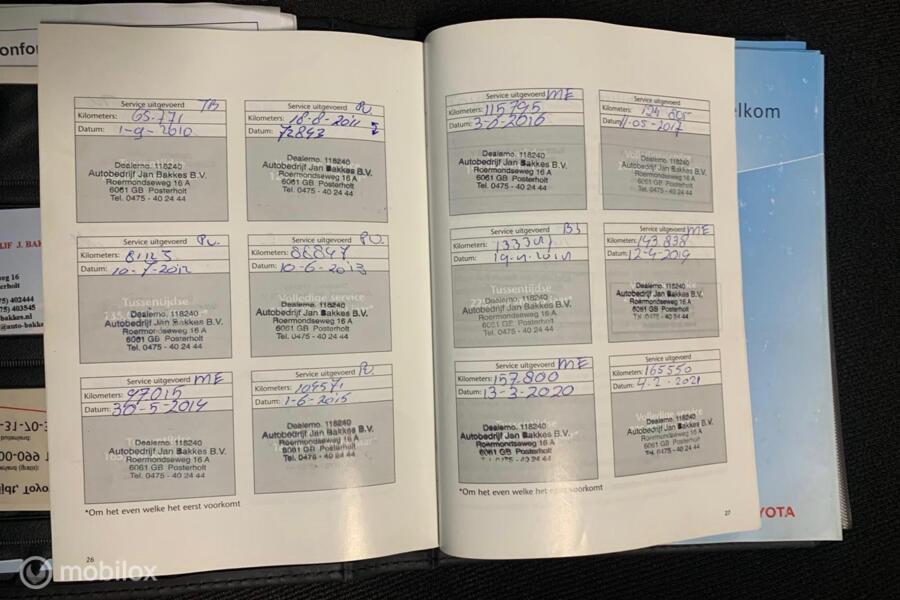 onfor
Service uitgevoerd TB
Kilometers: 65.771
Datum: 1-9-2010
Dealerno. 118240
Autobedrijf Jan Bakkes B.V.
Roermondseweg 16 A
6061 GB Posterholt
Tel. 0475 - 40 24 44
Service uitgevoerd PU.
Kilometers: 18-8-2011
Datum: 72843
Dealerno. 118240
Autobedrijf Jan Bakkes B.V.
Roermondseweg 16 A
6061 GB Posterholt
Tel. 0475 - 40 24 44
Service uitgevoerd PU.
Kilometers:
Datum: 10-7-2012
Tussentijdse
Dealerno. 118240
Autobedrijf Jan Bakkes B.V.
Roermondseweg 16 A
6061 GB Posterholt
Tel. 0475 - 40 24 44
Service uitgevoerd PU.
Kilometers: 88847
Datum: 10-6-2013
Volledige service
Dealerno. 118240
Autobedrijf Jan Bakkes B.V.
Roermondseweg 16 A
6061 GB Posterholt
Tel. 0475 - 40 24 44
Service uitgevoerd ME
Kilometers: 97015
Datum: 30-5-2014
Dealerno. 118240
Autobedrijf Jan Bakkes B.V.
Roermondseweg 16 A
6061 GB Posterholt
Tel. 0475 - 40 24 44
Service uitgevoerd PU.
Kilometers: 104571
Datum: 1-6-2015
Dealerno. 118240
Autobedrijf Jan Bakkes B.V.
Roermondseweg 16 A
6061 GB Posterholt
Tel. 0475 - 40 24 44
*Om het even welke het eerst voorkomt
26
Service uitgevoerd ME
Kilometers: 115795
Datum: 3-6-2016
Dealerno. 118240
Autobedrijf Jan Bakkes B.V.
Roermondseweg 16 A
6061 GB Posterholt
Tel. 0475 - 40 24 44
Service uitgevoerd
Kilometers: 124 805
Datum: 11-05-2017
Dealerno. 118240
Autobedrijf Jan Bakkes B.V.
Roermondseweg 16 A
6061 GB Posterholt
Tel. 0475 - 40 24 44
Service uitgevoerd
Kilometers:
Datum:
Tussentijdse
Dealerno. 118240
Autobedrijf Jan Bakkes B.V.
Roermondseweg 16 A
6061 GB Posterholt
Tel. 0475 - 40 24 44
Service uitgevoerd ME
Kilometers: 143.838
Datum: 12-4-2019
Dealerno. 118240
Autobedrijf Jan Bakkes B.V.
Roermondseweg 16 A
6061 GB Posterholt
Tel. 0475 - 40 24 44
Service uitgevoerd ME
Kilometers: 157.800
Datum: 13-3-2020
Dealerno. 118240
Autobedrijf Jan Bakkes B.V.
Roermondseweg 16 A
6061 GB Posterholt
Tel. 0475 - 40 24 44
Service uitgevoerd
Kilometers: 165550
Datum: 4-2-2021
Volledige service
Dealerno. 118240
Autobedrijf Jan Bakkes B.V.
Roermondseweg 16 A
6061 GB Posterholt
Tel. 0475 - 40 24 44
*Om het even welke het eerst voorkomt
27
elkom
YOTA
IJF J. BAK
weg 16
75) 402444
75) 403545
bakkes.nl
@auto-bakke
mobilox